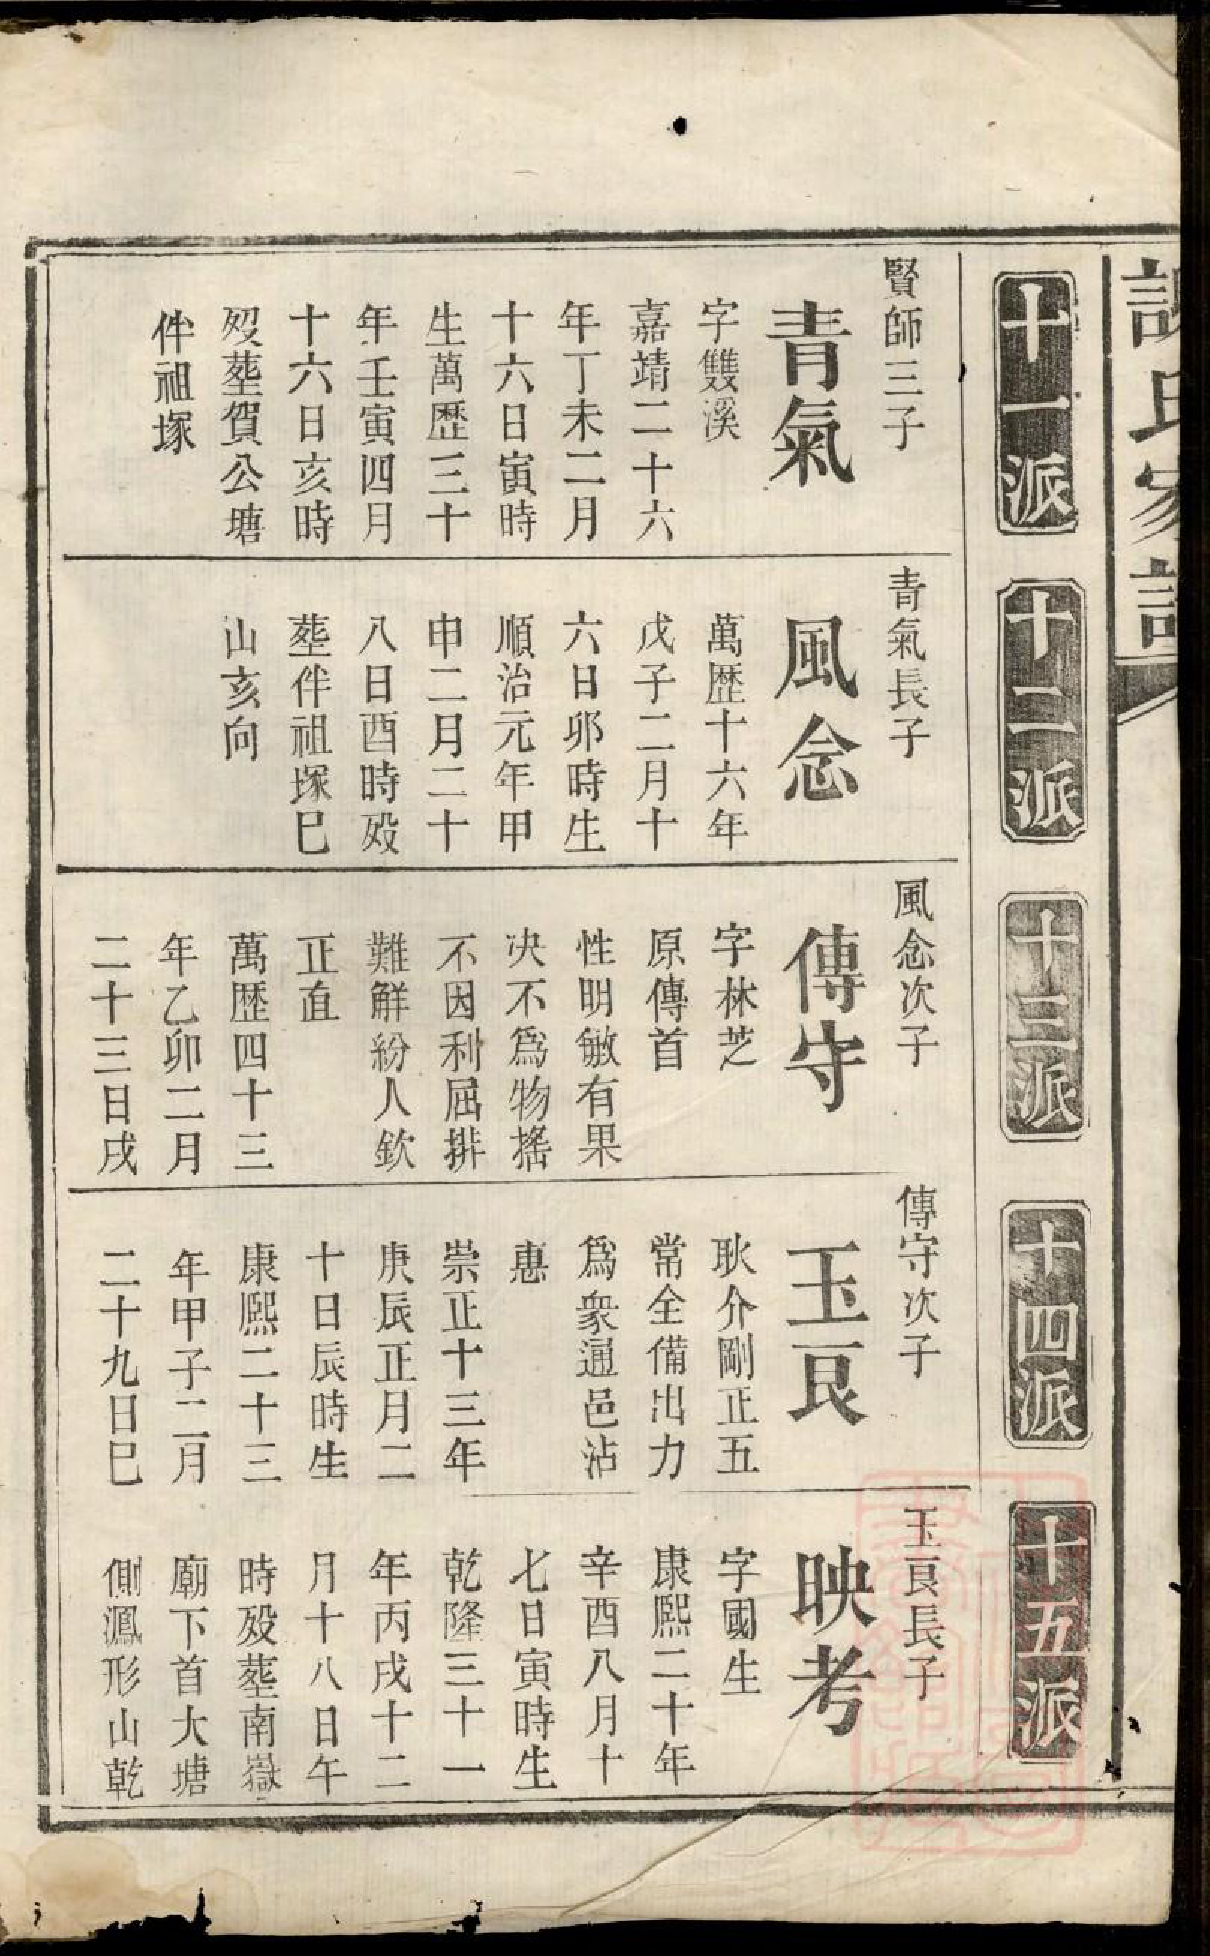 氏家譜
十一派
十二派
十三派
十四派
十五派
賢師三子
青氣
字雙溪
嘉靖二十六
年丁未二月
十六日寅時
生萬歷三十
年壬寅四月
十六日亥時
歿塟賀公塘
伴祖塚
青氣長子
風念
萬歷十六年
戊子二月十
六日卯時生
順治元年甲
申二月二十
八日酉時歿
塟伴祖塚巳
山亥向
風念次子
傳守
字林芝
原傳首
性明敏有果
决不爲物搖
不因利屈排
難解紛人欽
正直
萬歷四十三
年乙卯二月
二十三日戌
傳守次子
玉良
耿介剛正五
常全備出力
爲衆通邑沾
惠
崇正十三年
庚辰正月二
十日辰時生
康熙二十三
年甲子二月
二十九日巳
玉良長子
映考
字國生
康熙二十年
辛酉八月十
七日寅時生
乾隆三十一
年丙戌十二
月十八日午
時歿塟南嶽
廟下首大塘
側鳳形山乾